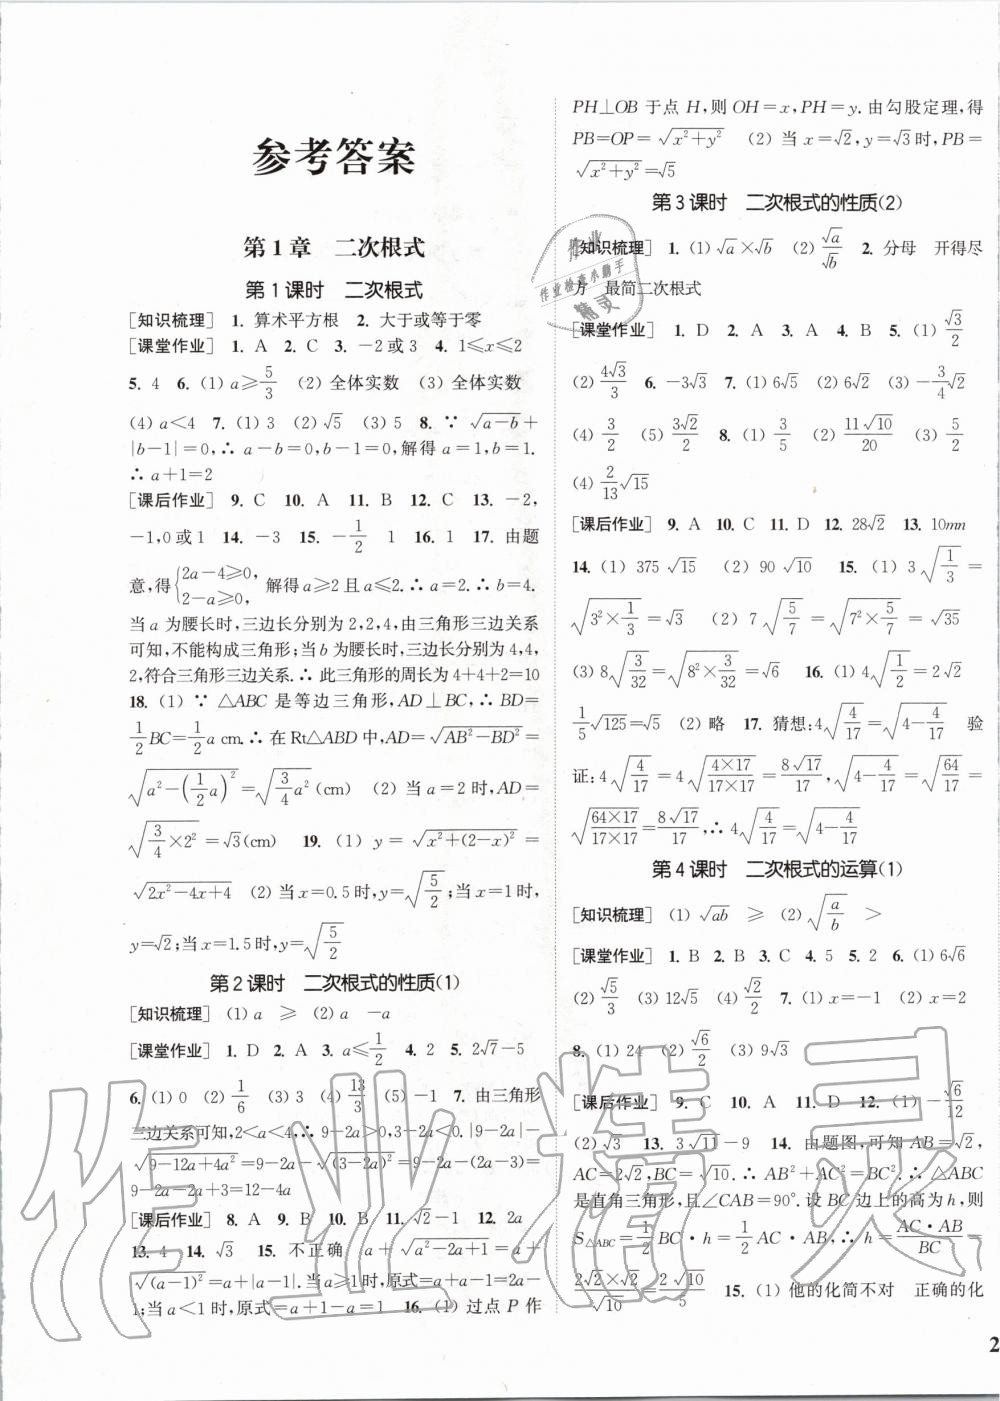 参考答案
第1章　二次根式
第1课时　二次根式
[知识梳理] 1. 算术平方根 2. 大于或等于零
[课堂作业] 1. A 2. C 3. －2或3 4. 1≤x≤2
5. 4 6. (1) a≥5/3 (2) 全体实数 (3) 全体实数
(4) a＜4 7. (1) 3 (2) √5 (3) 5 8. ∵ √(a－b)＋
|b－1|＝0,∴ a－b＝0,b－1＝0,解得 a＝1,b＝1.
∴ a＋1＝2
[课后作业] 9. C 10. A 11. B 12. C 13. －2,
－1,0或1 14. －3 15. －1/2 1 16. 1 17. 由题
意,得{2a－4≥0, 2－a≥0, 解得 a≥2且 a≤2.∴ a＝2.∴ b＝4.
当 a 为腰长时,三边长分别为2,2,4,由三角形三边关系
可知,不能构成三角形;当 b 为腰长时,三边长分别为4,4,
2,符合三角形三边关系.∴ 此三角形的周长为4＋4＋2＝10
18. (1) ∵ △ABC 是等边三角形,AD⊥BC,∴ BD＝
1/2 BC＝1/2 a cm.∴ 在 Rt△ABD 中,AD＝√(AB²－BD²)＝
√(a²－(1/2 a)²)＝√(3/4 a²)(cm) (2) 当 a＝2时,AD＝
√(3/4×2²)＝√3(cm) 19. (1) y＝√(x²＋(2－x)²)＝
√(2x²－4x＋4) (2) 当 x＝0.5时,y＝√(5/2);当 x＝1时,
y＝√2;当 x＝1.5时,y＝√(5/2)
第2课时　二次根式的性质(1)
[知识梳理] (1) a ≥ (2) a －a
[课堂作业] 1. D 2. A 3. a≤1/2 4. 2 5. 2√7－5
6. (1) 0 (2) 1/6 (3) 3 (4) 13/3 (5) －1 7. 由三角形
三边关系可知,2＜a＜4,∴ 9－2a＞0,3－2a＜0.|9－2a|－
√(9－12a＋4a²)＝9－2a－√((3－2a)²)＝9－2a－|3－2a|＝
9－2a－2a＋3＝12－4a
[课后作业] 8. A 9. B 10. B 11. √2－1 12. 2a
13. 4 14. √3 15. 不正确 a＋√(a²－2a＋1)＝a＋
√((a－1)²)＝a＋|a－1|.当 a≥1时,原式＝a＋a－1＝2a－
1;当 a＜1时,原式＝a＋1－a＝1 16. (1) 过点 P 作
PH⊥OB 于点 H,则 OH＝x,PH＝y.由勾股定理,得
PB＝OP＝√(x²＋y²) (2) 当 x＝√2,y＝√3时,PB＝
√(x²＋y²)＝√5
第3课时　二次根式的性质(2)
[知识梳理] 1. (1) √a×√b (2) √a/√b 2. 分母 开得尽
方 最简二次根式
[课堂作业] 1. D 2. A 3. A 4. B 5. (1) √3/2
(2) 4√3/3 6. －3√3 7. (1) 6√5 (2) 6√2 (3) －3/4√2
(4) 3/2 (5) 3√2/2 8. (1) 3/5 (2) 11√10/20 (3) 5/2
(4) 2/13√15
[课后作业] 9. A 10. C 11. D 12. 28√2 13. 10mn
14. (1) 375√15 (2) 90√10 15. (1) 3√(1/3)＝
√(3²×1/3)＝√3 (2) 7√(5/7)＝√(7²×5/7)＝√35
(3) 8√(3/32)＝√(8²×3/32)＝√6 16. (1) 4√(1/2)＝2√2
1/5√125＝√5 (2) 略 17. 猜想:4√(4/17)＝√(4－4/17) 验
证:4√(4/17)＝4√((4×17)/(17×17))＝8√17/17,√(4－4/17)＝√(64/17)＝
√((64×17)/(17×17))＝8√17/17,∴ 4√(4/17)＝√(4－4/17)
第4课时　二次根式的运算(1)
[知识梳理] (1) √ab ≥ (2) √(a/b) ＞
[课堂作业] 1. B 2. B 3. C 4. 5 5. 2 6. (1) √6
(2) √5/3 (3) 12√5 (4) √2/2 7. (1) x＝－1 (2) x＝2
8. (1) 24 (2) √6/2 (3) 9√3
[课后作业] 9. C 10. A 11. D 12. (1) －√6/12
(2) √3 13. 3√11－9 14. 由题图,可知 AB＝√2,
AC＝2√2,BC＝√10.∴ AB²＋AC²＝BC².∴ △ABC
是直角三角形,且∠CAB＝90°.设 BC 边上的高为 h,则
S△ABC＝1/2 BC·h＝1/2 AC·AB,∴ h＝(AC·AB)/BC＝
(2√2×√2)/√10＝2√10/5 15. (1) 他的化简不对 正确的化
2
作业精灵
作业检查小助手
精灵